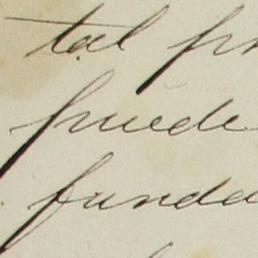 tal pr
puede
funda